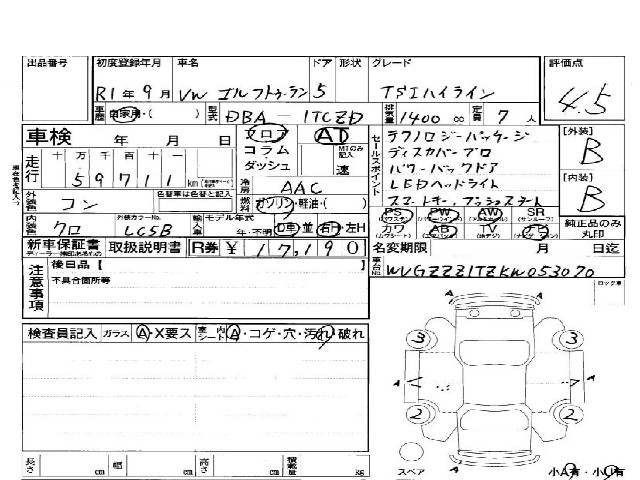 出品番号 初度登録年月 車名 ドア 形状 グレード 評価点
R1年9月 VW ゴルフトゥーラン 5 TSIハイライン 4.5
車歴 自家用・( ) 型式 DBA-1TCZD 排気量 1400 cc 定員 7 人
車検 年 月 日 フロア AT セールスポイント テクノロジーパッケージ [外装]
コラム MTのみ記入 ディスカバープロ B
走行 十 万 千 百 十 一 ダッシュ 速 パワーバックドア
59711 km 冷房 AAC LEDヘッドライト [内装]
外装色 コン 色替車は色替と記入 燃料 ガソリン・軽油・( ) スマートキー、プッシュスタート B
内装色 クロ 外装カラーNo. LC5B 輸入車 モデル年式 年・不明 D車 並 右H・左H PS PW AW SR (サンルーフ)
カワ AB TV 純正品のみ丸印
新車保証書 取扱説明書 R券 ¥ 17,190 名変期限 月 日迄
注意事項 後日品 [ ] 車台No. WVGZZZ1TZKW053070 ロック車
不具合箇所等
検査員記入 ガラス A・X要ス 室内シート A・コゲ・穴・汚れ・破れ
3 3
A A
A
2 2
長さ cm 幅 cm 高さ cm 積載量 kg スペア 小A有・小U有